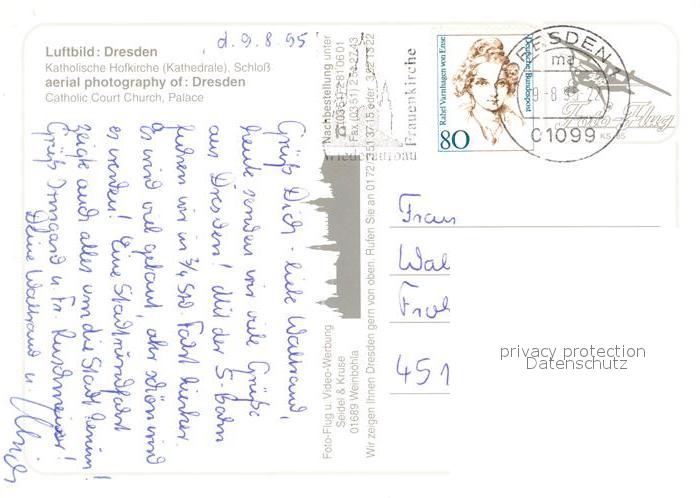 d. 9.8.95
Luftbild: Dresden
Katholische Hofkirche (Kathedrale), Schloß
aerial photography of: Dresden
Catholic Court Church, Palace
Grüß Dich - liebe Waltraud,
heute senden wir viele Grüße
aus Dresden! Mit der S-Bahn
fuhren wir in 3/4 Std. Fahrt hierher.
Es wird viel gebaut, aber schön wird
es werden! Eine Stadtrundfahrt
zeigte auch alles um die Stadt herum!
Grüß Irmgard u. Fr.
Deine Waltraud u.
Nachbestellung unter
Wiederaufbau Frauenkirche
Wir zeigen Ihnen Dresden gern von oben. Rufen Sie an 01 72/3 51 37 15 oder
Foto-Flug u. Video-Werbung
Seidel & Kruse
01689 Weinböhla
Rahel Varnhagen von Ense
Deutsche Bundespost
80
DRESDEN
ma
01099
Foto-Flug
Frau
Wal
Froh
451
privacy protection
Datenschutz